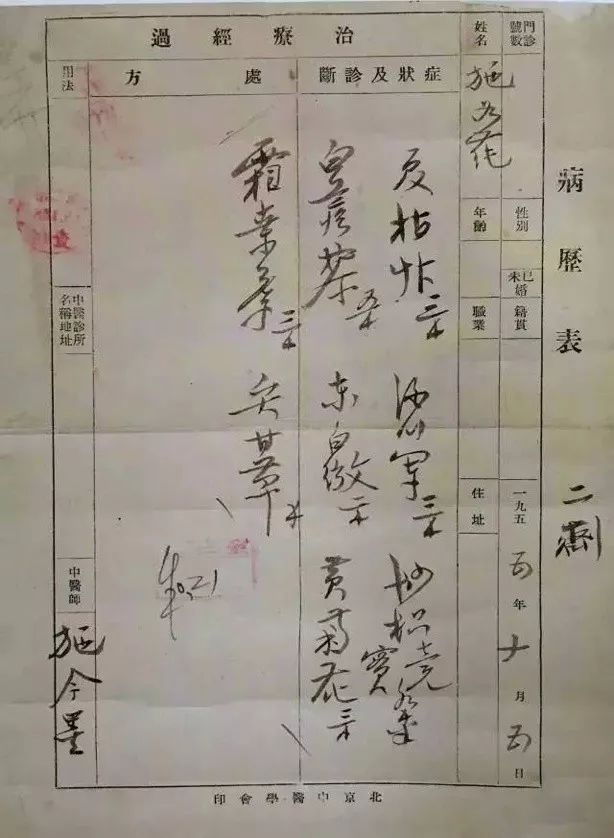 病歷表 二劑
門診號數
性別
已未婚
籍貫
一九五五年十月五日
姓名 施
年齡
職業
住址
治療經過
症狀及診斷
處方
用法
夏枯艸三錢 酒川軍 炒枳壳實
白蒺藜五錢 東白薇二錢 黃菊花三錢
霜桑葉三錢 炙甘草
中醫診所名稱地址
中醫師 施今墨
北京中醫學會印